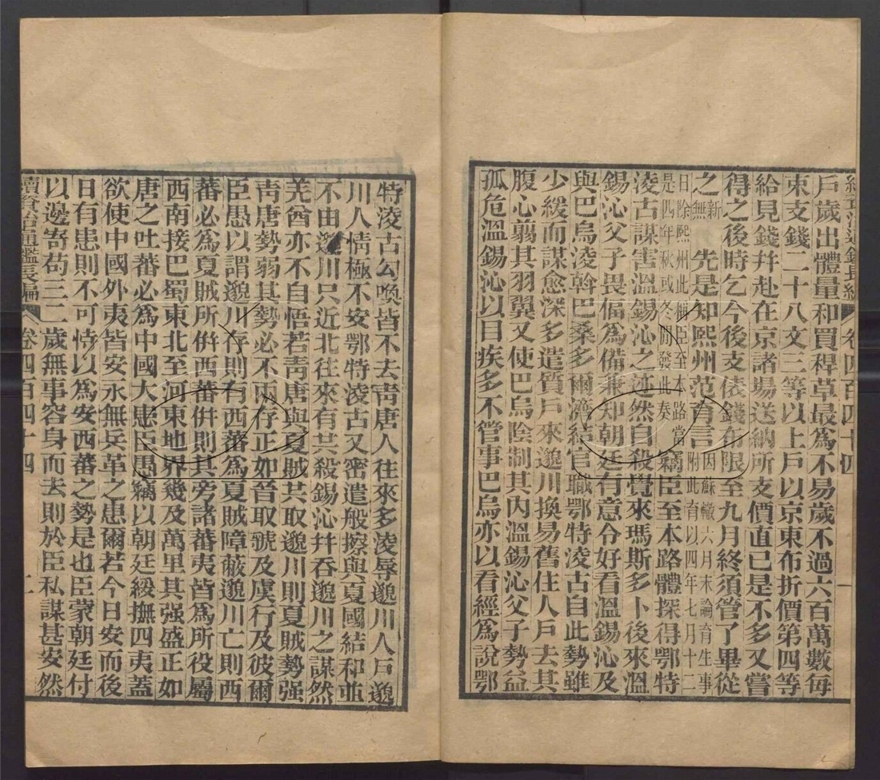 戶歲出體量和買稈草最爲不易歲不過六百萬數每
束支錢二十八文三等以上戶以京東布折價第四等
給見錢幷赴在京諸場送納所支價直已是不多又嘗
得之後時乞今後支俵錢布限至九月終須管了畢從
之新無先是知熙州范育言因蘇轍六月末論育生事附此育以四年七月十二
日除熙州此稱臣至本路當是四年秋或冬間發此奏竊臣至本路體探得鄂特
淩古謀害溫錫沁之迹然自殺覺來瑪斯多卜後來溫
錫沁父子畏偪爲備兼知朝廷有意令好看溫錫沁及
與巴烏淩斡巴桑多爾濟結官職鄂特淩古自此勢雖
少緩而謀愈深多遣質戶來邈川換易舊住人戶去其
腹心翦其羽翼又使巴烏陰制其內溫錫沁父子勢益
孤危溫錫沁以目疾多不管事巴烏亦以看經爲說鄂
續資治通鑑長編 卷四百四十四 一
特淩古勾喚皆不去靑唐人往來多淩辱邈川人戶邈
川人情極不安鄂特淩古又密遣般擦與夏國結和並
不由邈川只近北往來有共殺錫沁幷吞邈川之謀然
羌酋亦不自悟若靑唐與夏賊共取邈川則夏賊勢强
靑唐勢弱其勢必不兩存正如晉取虢及虞行及彼爾
臣愚以謂邈川存則有西蕃爲夏賊障蔽邈川亡則西
蕃必爲夏賊所併西蕃併則其旁諸蕃夷皆爲所役屬
西南接巴蜀東北至河東地界幾及萬里其强盛正如
唐之吐蕃必爲中國大患臣愚竊以朝廷緩撫四夷蓋
欲使中國外夷皆安永無兵革之患爾若今日安而後
日有患則不可恃以爲安西蕃之勢是也臣蒙朝廷付
以邊寄苟三二歲無事容身而去則於臣私謀甚安然
續資治通鑑長編 卷四百四十四